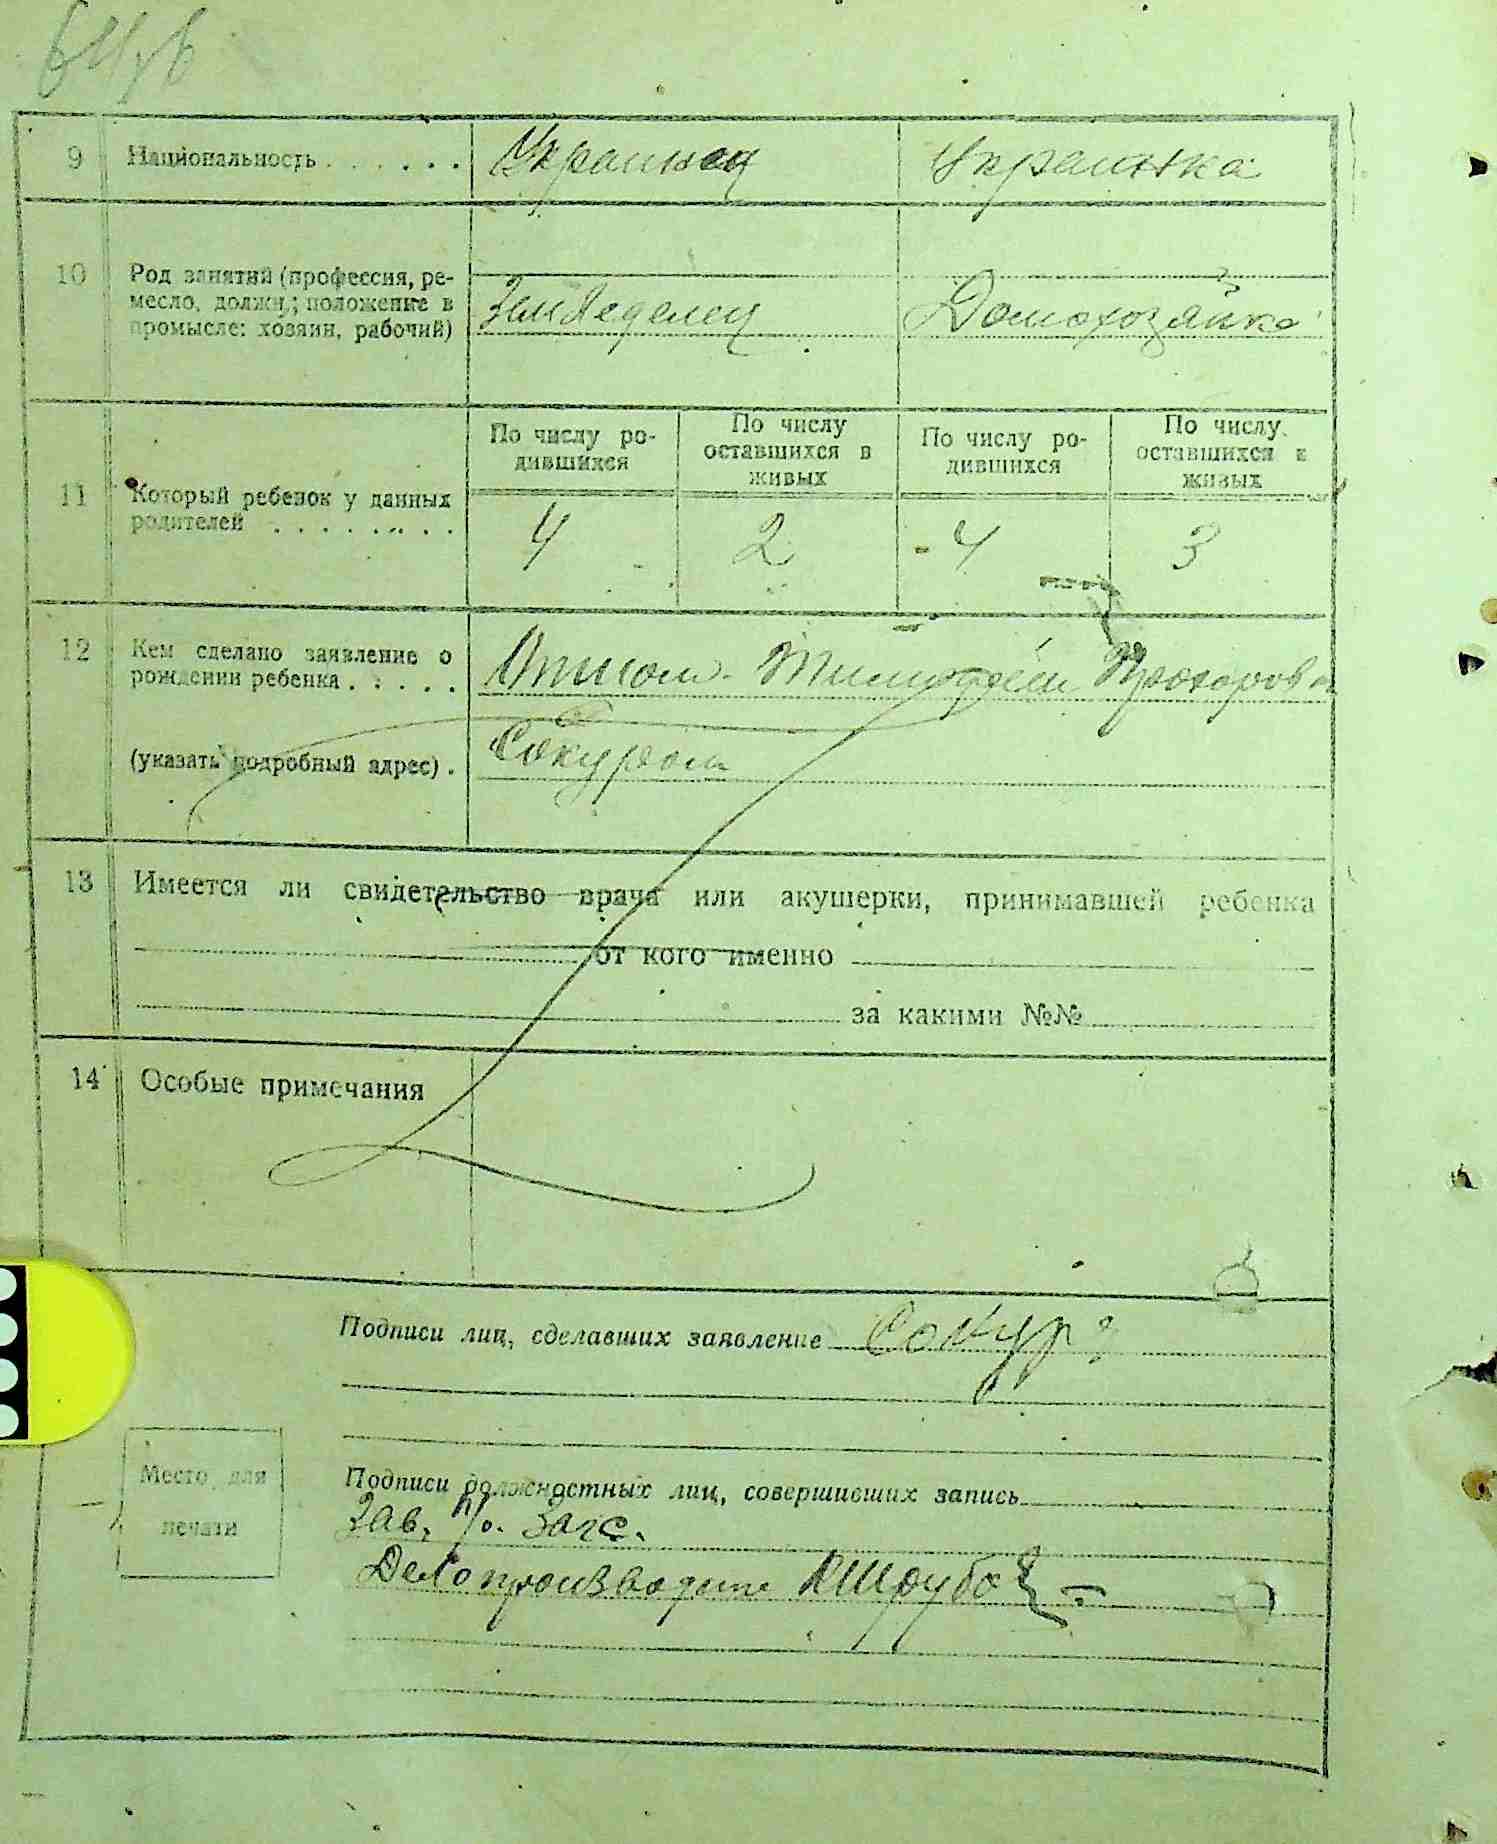 9 Национальность . . . . . . Украинец Украинка
10 Род занятий (профессия, ре-
месло, должн.; положение в
промысле: хозяин, рабочий)
Земледелец Домохозяйка
По числу ро-
дившихся
По числу
оставшихся в
живых
По числу ро-
дившихся
По числу
оставшихся в
живых
11 Который ребенок у данных
родителей . . . . . . . .
4 2 4 3
12 Кем сделано заявление о
рождении ребенка . . . . .
Отцом Тимофеем Прохоров
(указать подробный адрес) .
Сокуром
13 Имеется ли свидетельство врача или акушерки, принимавшей ребенка
от кого именно
за какими №№
14 Особые примечания
Подписи лиц, сделавших заявление Сокур
Место для
печати
Подписи должностных лиц, совершивших запись
Зав. п/о. Загс.
Делопроизводите